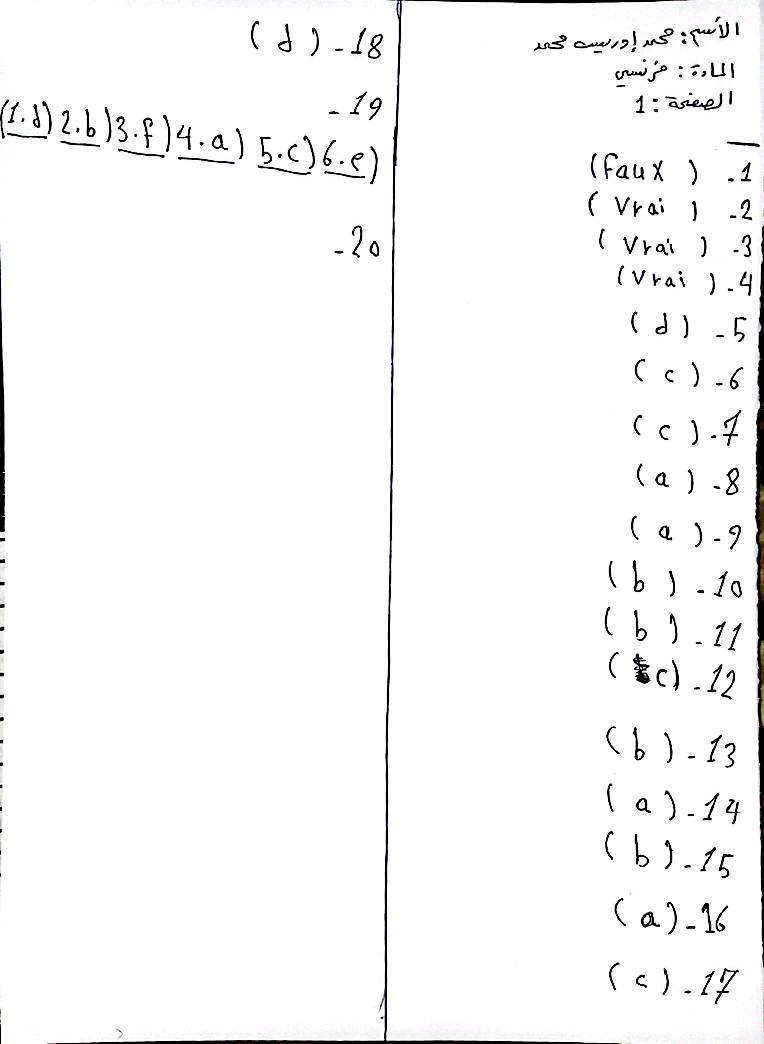 الأسم: محمد إدريس محمد
المادة: فرنسي
الصفحة: 1
1- (Faux)
2- (Vrai)
3- (Vrai)
4- (Vrai)
5- (d)
6- (c)
7- (c)
8- (a)
9- (a)
10- (b)
11- (b)
12- (c)
13- (b)
14- (a)
15- (b)
16- (a)
17- (c)
18- (d)
19-
(1.d) 2.b) 3.f) 4.a) 5.c) 6.e)
20-